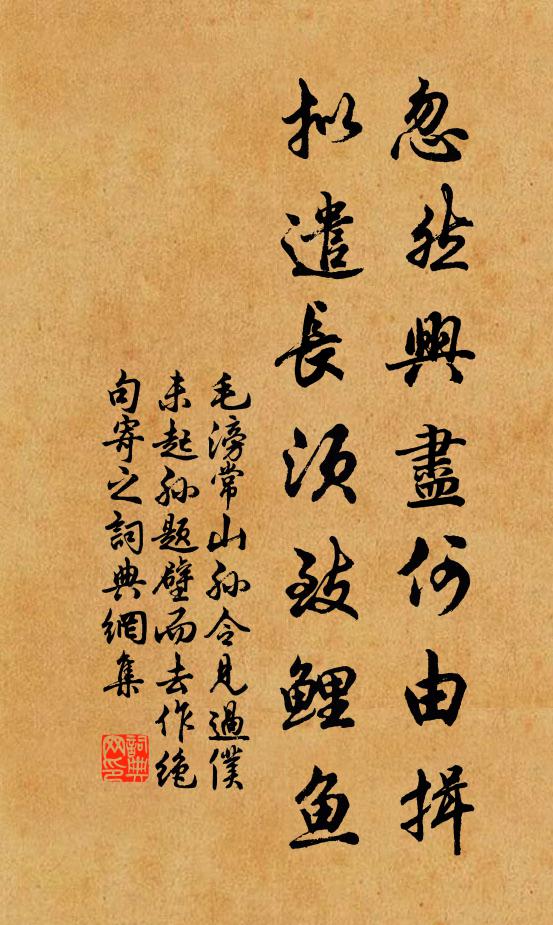 忽然興盡何由揖
擬遣長須致鯉魚
毛滂常山孫令見過僕
未起孫題壁而去作絕
句寄之詞典網集
詞典
网印